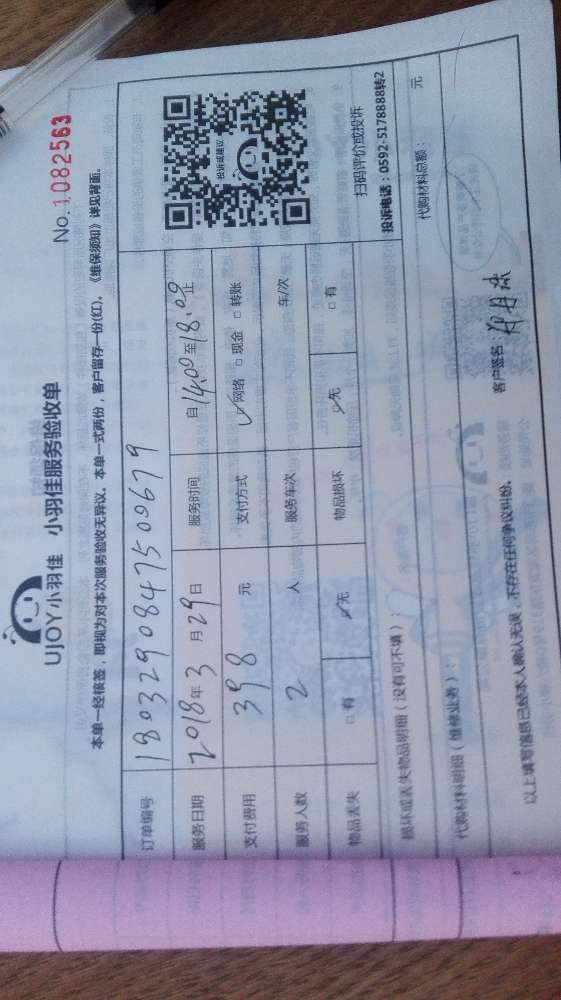 UJOY小羽佳 小羽佳服务验收单
No.1082563
本单一经核签，即视为对本次服务验收无异议。本单一式两份，客户留存一份(红)。《维保须知》详见背面。
订单编号 1803290847509679
服务日期 2018年3月29日 服务时间 自14:00至18:00止
支付费用 398 元 支付方式 ☑网络 □现金 □转账
服务人数 2 人 服务车次 车/次
物品丢失 □有 ☑无 物品损坏 ☑无 □有
投诉或建议
扫码评价或投诉
投诉电话：0592-5178888转2
损坏或丢失物品明细（没有可不填）：
代购材料明细（维修业务）： 代购材料总额： 元
以上填写信息已经本人确认无误，不存在任何争议纠纷。 客户签名：